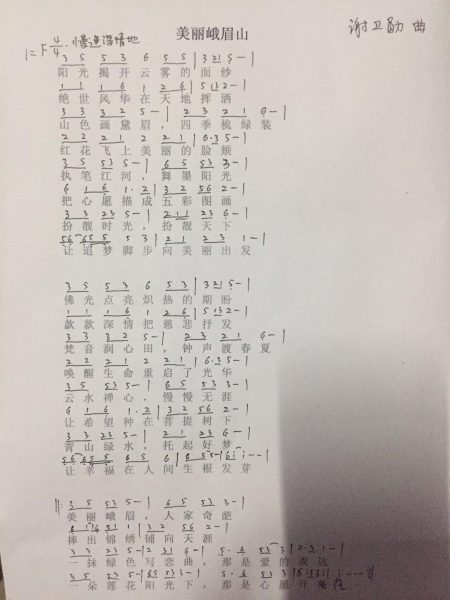 美丽峨眉山
谢卫勋 曲
1=F 4/4 . 慢速深情地
3 5 5 3 6 5 5 | 3 2 1 5 - |
阳光揭开云雾的面纱
1 1 1 6 1 2 6 | 5 1 3 2 - |
绝世风华在天地挥洒
3 3 3 2 5 - | 2 3 2 1 6 - |
山色画黛眉，四季梳绿装
2 2 2 1 2 2 1 | 6 · 3 5 - |
红花飞上美丽的脸颊
3 5 5 3 5 - | 6 5 5 3 3 - |
执笔江河，舞墨阳光
6 1 6 1 · 2 | 3 2 5 6 2 - |
把心愿描成五彩图画
3 3 2 3 5 - | 2 1 1 2 3 6 - |
扮靓时光，扮靓天下
5 6 6 5 5 5 3 | 2 1 2 3 1 - |
让追梦脚步向美丽出发
3 5 5 3 6 5 3 | 3 2 1 5 - |
佛光点亮炽热的期盼
1 1 1 6 1 2 6 | 5 1 3 2 - |
款款深情把慈悲抒发
3 3 3 2 5 - | 2 3 2 1 6 - |
梵音润心田，钟声渡春夏
2 2 2 1 2 2 1 | 6 · 3 5 - |
唤醒生命重启了光华
3 5 5 3 5 - | 6 5 5 3 3 - |
云水禅心，慢慢无涯
6 1 6 1 · 2 | 3 2 5 6 2 - |
让希望种在菩提树下
3 3 2 3 5 - | 2 1 2 3 6 - |
青山绿水，托起好梦
让幸福在人间生根发芽
3 5 5 3 5 - | 6 5 5 3 3 - |
美丽峨眉，人家奇葩
捧出锦绣铺向天涯
一抹绿色写恋曲，那是爱的表达
一朵莲花阳光下，那是心愿开花